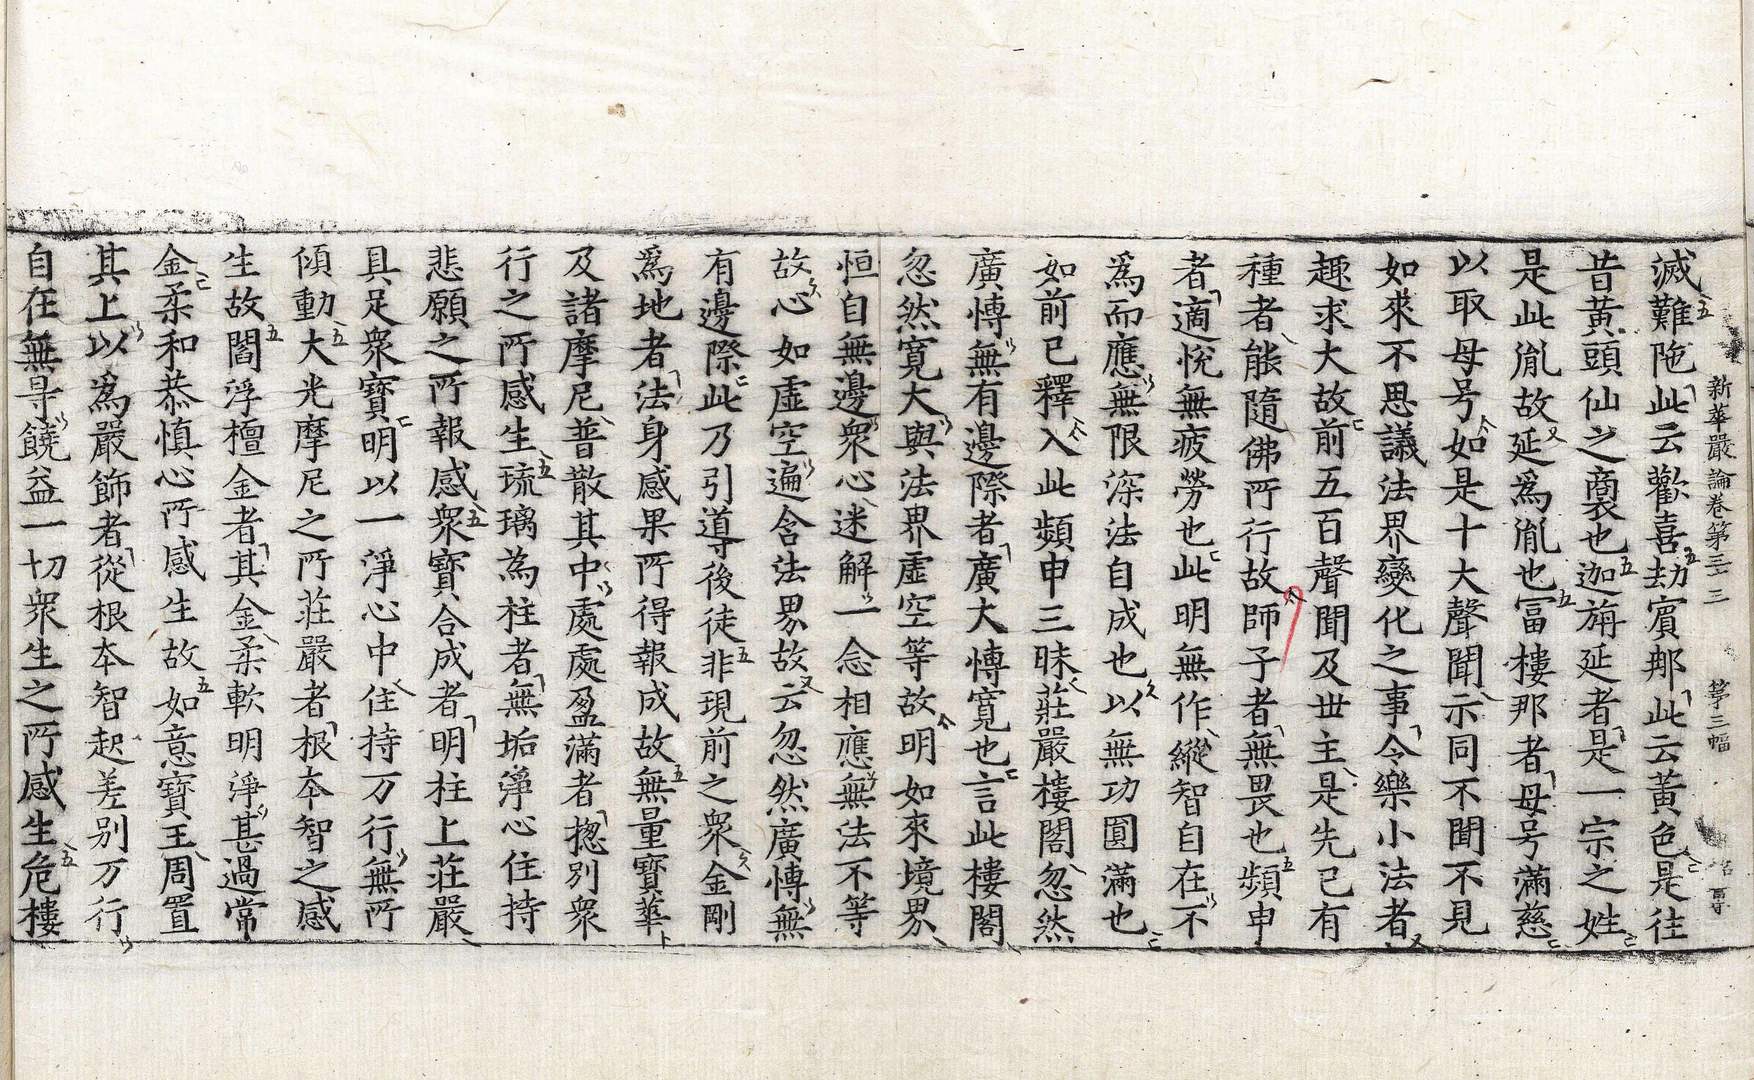 新華嚴論卷第三十三 第三幅
滅難陁此云歡喜劫賓那此云黃色是往
昔黃頭仙之裔也迦旃延者是一宗之姓
是此胤故延爲胤也冨樓那者母号滿慈
以取母号如是十大聲聞示同不聞不見
如來不思議法界變化之事令樂小法者
趣求大故前五百聲聞及世主是先已有
種者能隨佛所行故師子者無畏也頻申
者適悅無疲勞也此明無作縱智自在不
爲而應無限深法自成也以無功圓滿也
如前已釋入此頻申三昧莊嚴樓閣忽然
廣愽無有邊際者廣大愽寬也言此樓閣
忽然寬大與法界虛空等故明如來境界
恒自無邊衆心迷解一念相應無法不等
故心如虛空遍含法界故云忽然廣愽無
有邊際此乃引導後徒非現前之衆金剛
爲地者法身感果所得報成故無量寶華
及諸摩尼普散其中處處盈滿者揔別衆
行之所感生琉璃為柱者無垢淨心住持
悲願之所報感衆寶合成者明柱上莊嚴
具足衆寶明以一淨心中住持万行無所
傾動大光摩尼之所莊嚴者根本智之感
生故閻浮檀金者其金柔軟明淨甚過常
金柔和恭慎心所感生故如意寶王周置
其上以爲嚴飾者從根本智起差别万行
自在無㝵饒益一切衆生之所感生危樓